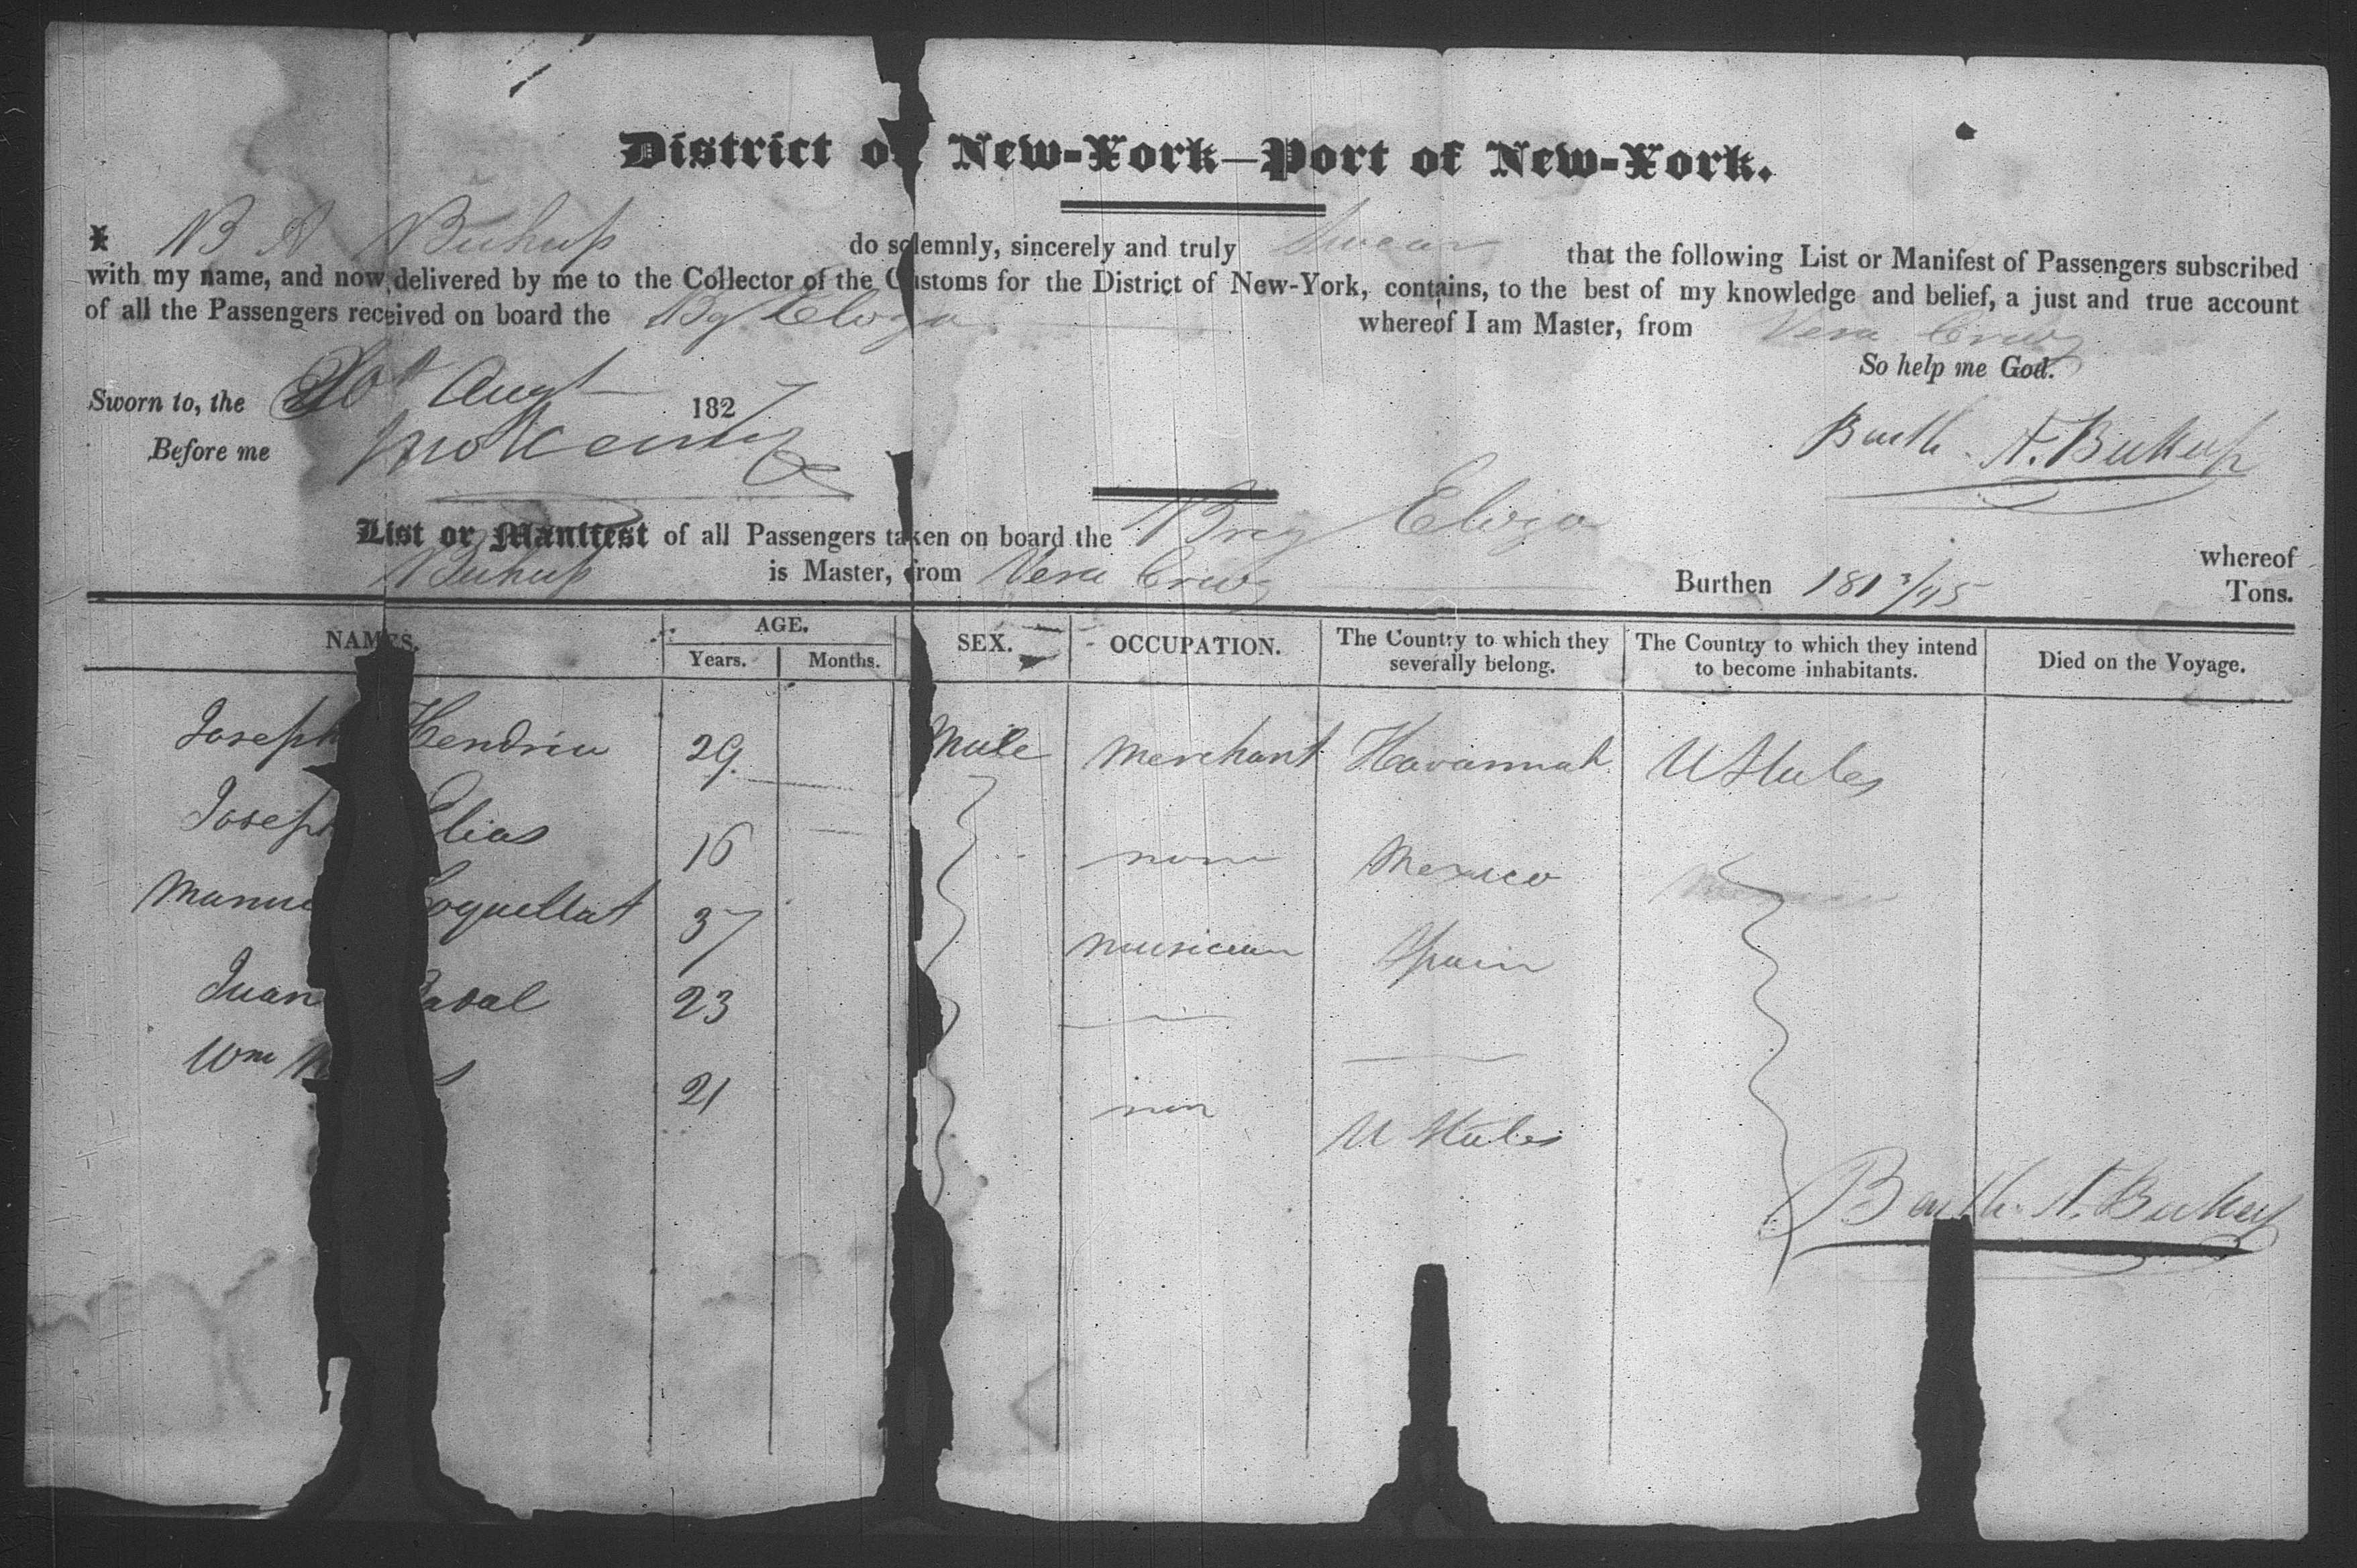 District of New-York—Port of New-York.
I, B A Buhup do solemnly, sincerely and truly Swear that the following List or Manifest of Passengers subscribed
with my name, and now delivered by me to the Collector of the Customs for the District of New-York, contains, to the best of my knowledge and belief, a just and true account
of all the Passengers received on board the Bg Eliza whereof I am Master, from Vera Cruz
So help me God.
Sworn to, the 20th Augt 1827
Before me
Barth. A. Buhup
List or Manifest of all Passengers taken on board the Brig Eliza whereof
Buhup is Master, from Vera Cruz Burthen 181 3/95 Tons.
NAMES. AGE. Years. Months. SEX. OCCUPATION. The Country to which they severally belong. The Country to which they intend to become inhabitants. Died on the Voyage.
Joseph 29 Male Merchant Havannah U States
Joseph Elias 16 none Mexico
Manue oquellat 37 musician Spain
Juan 23
Wm 21 non U States
Barth. A. Buhup